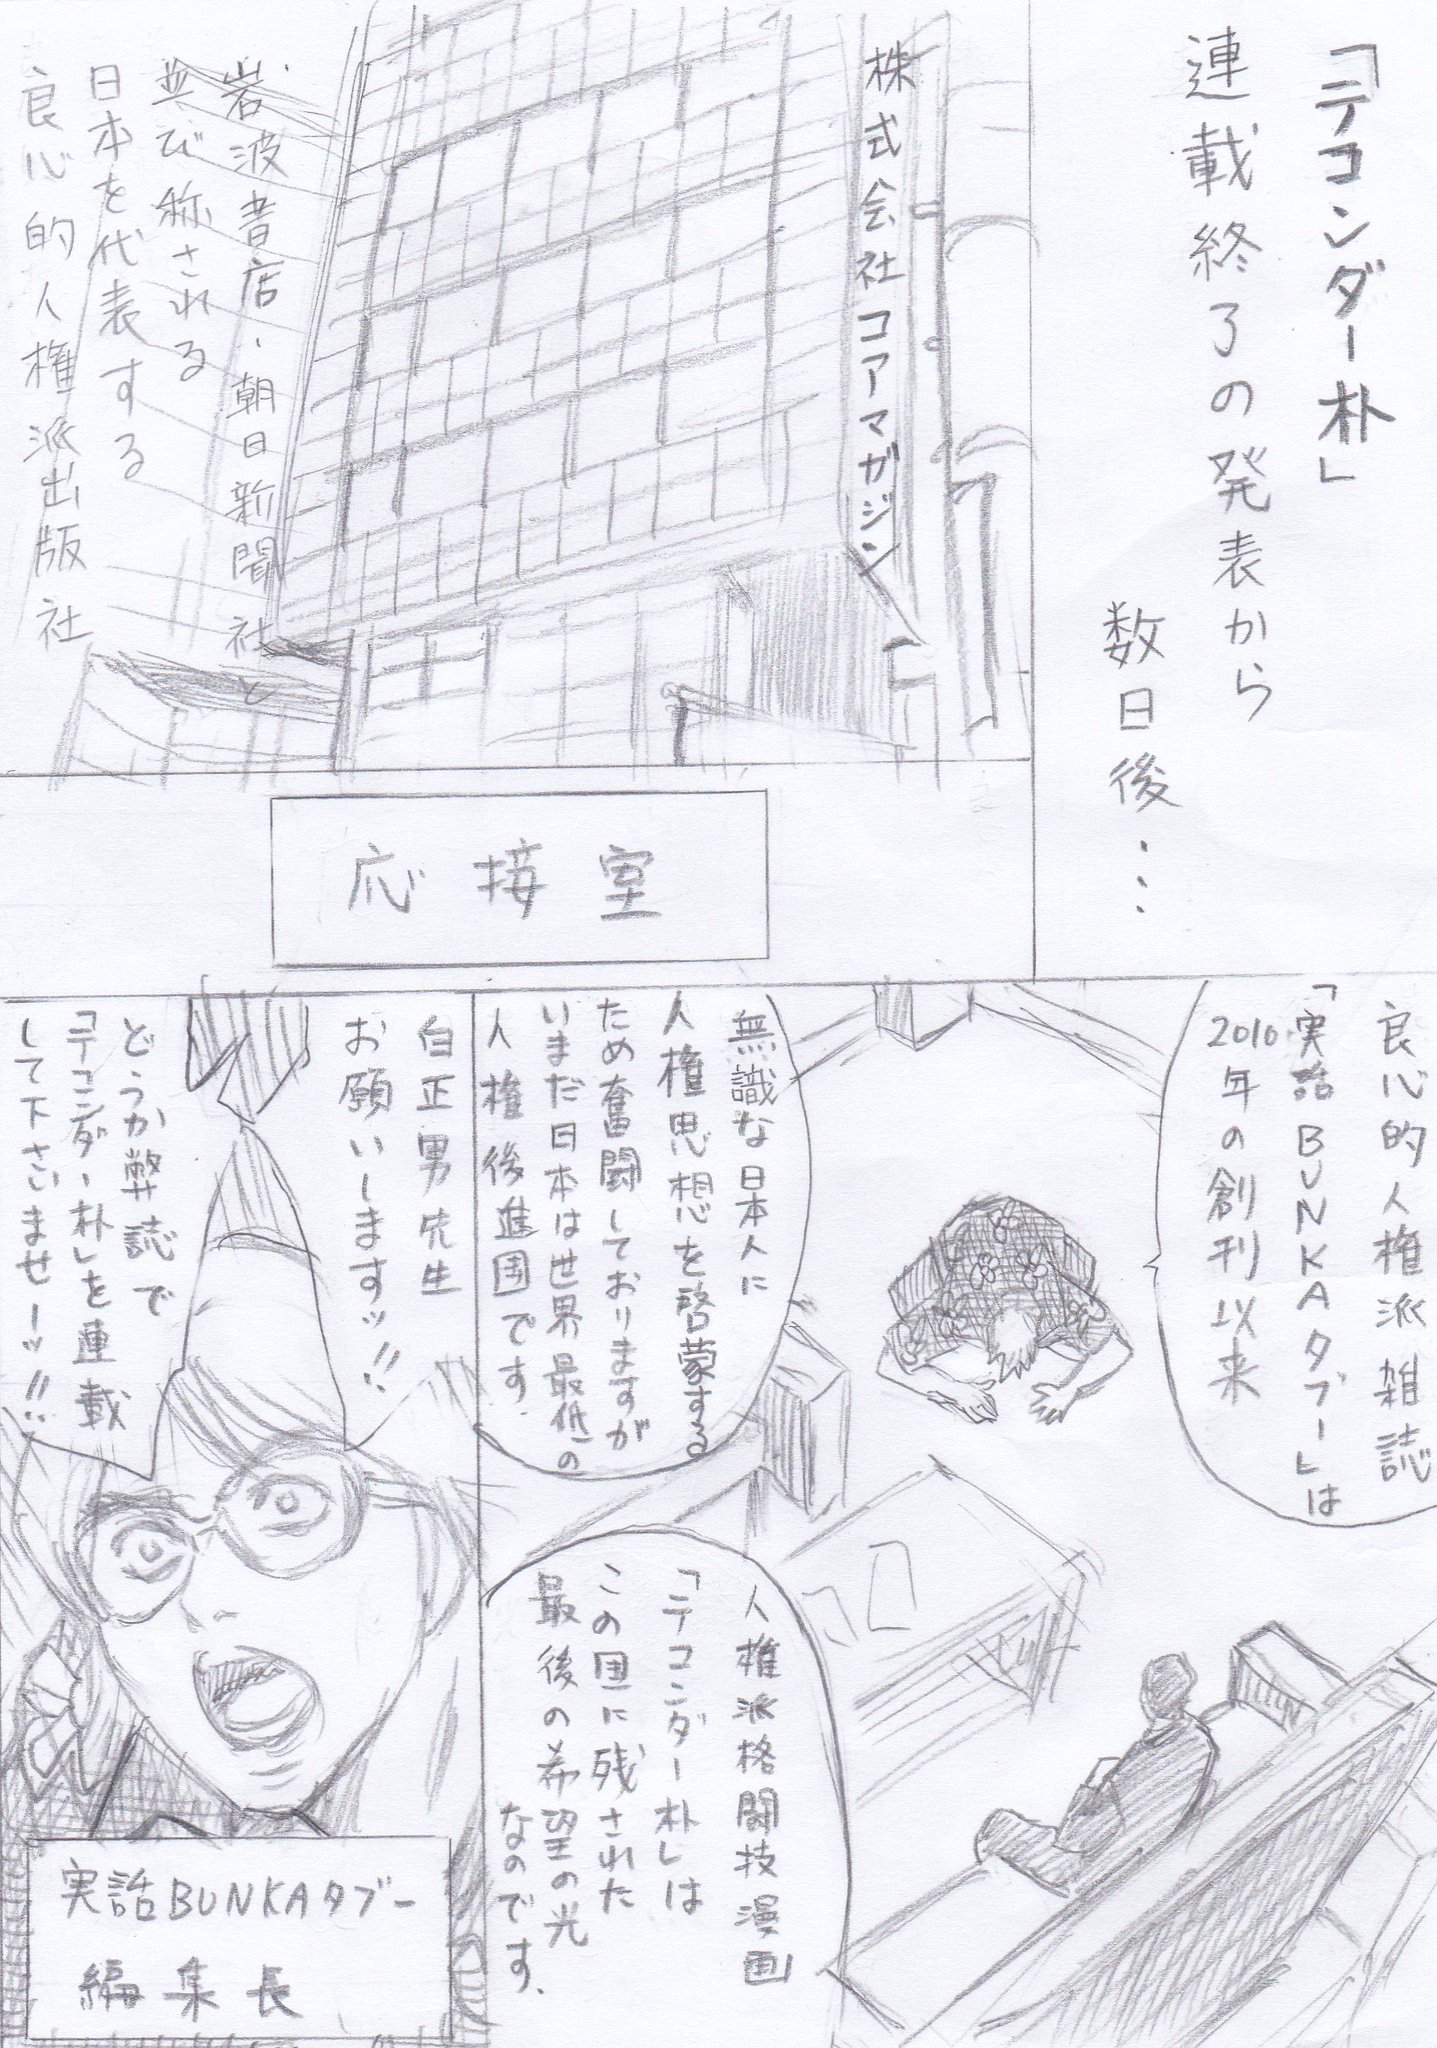 「テコンダー朴」
連載終了の発表から
数日後・・・
株式会社コアマガジン
岩波書店・朝日新聞社と
並び称される
日本を代表する
良心的人権派出版社
応接室
良心的人権派雑誌
「実話BUNKAタブー」は
2010年の創刊以来
無識な日本人に
人権思想を啓蒙する
ため奮闘しておりますが
いまだ日本は世界最低の
人権後進国です.
人権派格闘技漫画
「テコンダー朴」は
この国に残された
最後の希望の光
なのです.
白正男先生
お願いしますッ!!
どうか弊誌で
「テコンダー朴」を連載
して下さいませーッ!!
実話BUNKAタブー
編集長